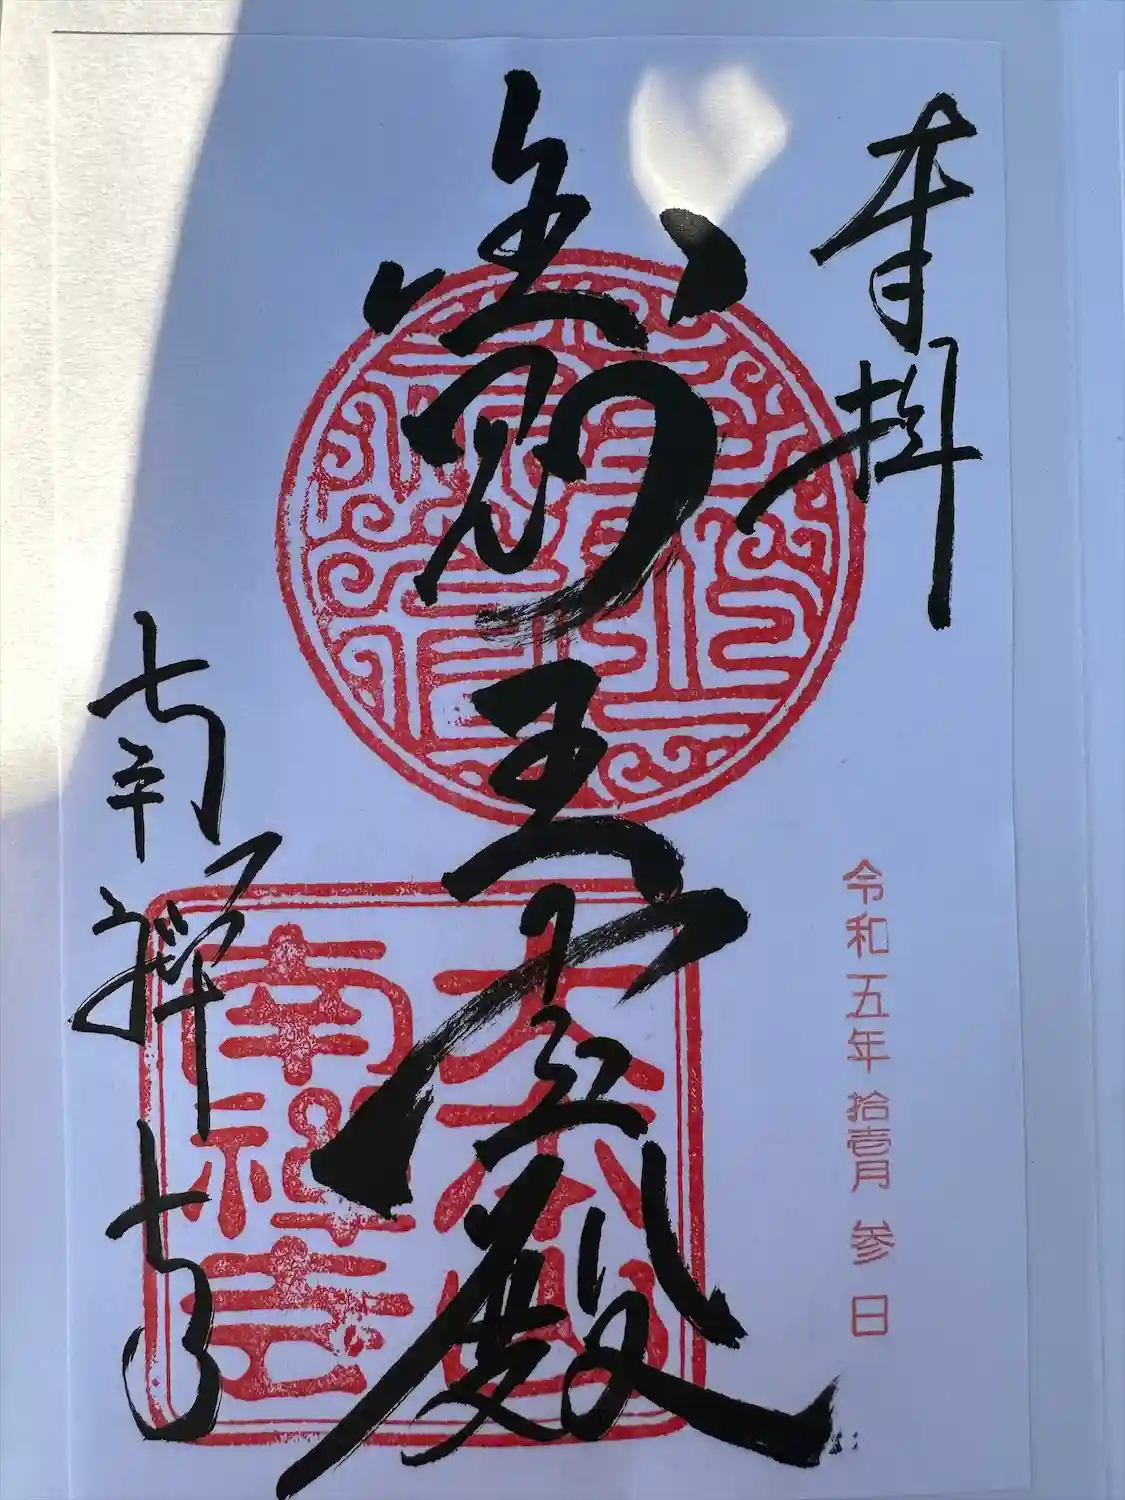 奉拝
令和五年拾壹月参日
金剛王宝殿
大本山
南禪寺
南禅寺